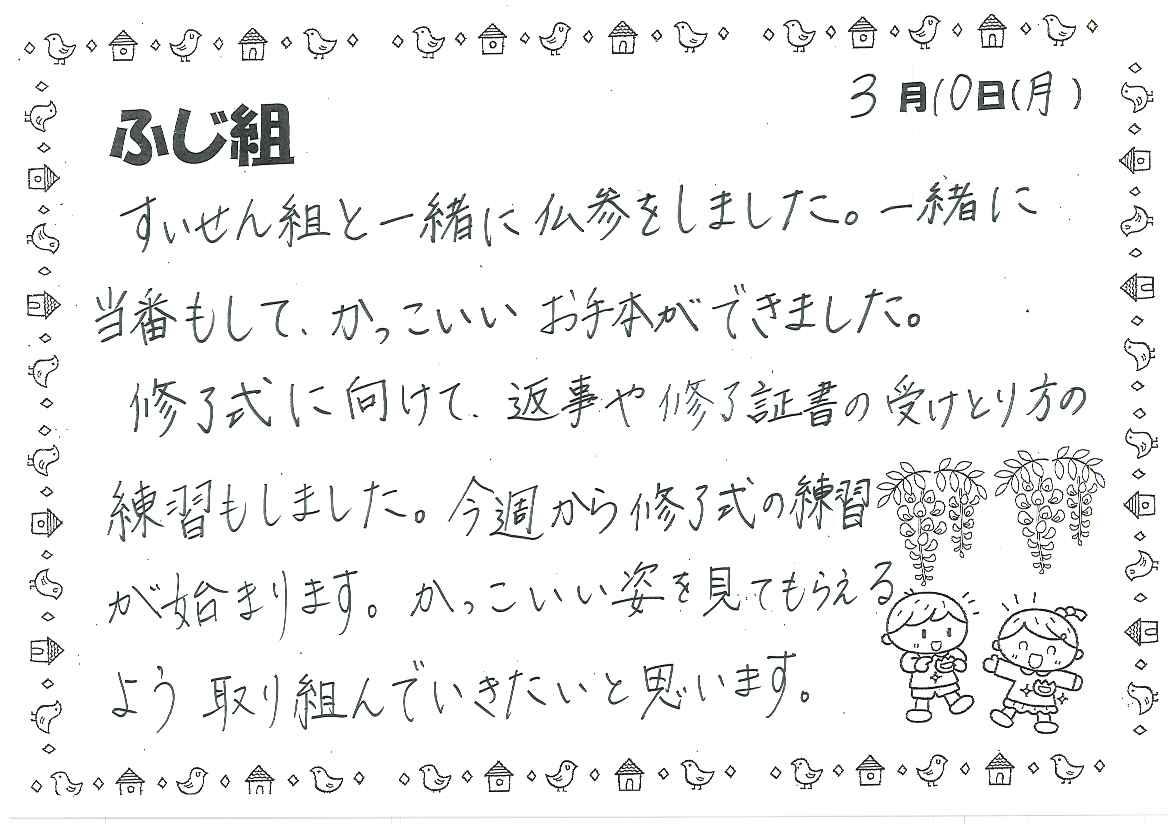 3月10日(月)
ふじ組
すいせん組と一緒に仏参をしました。一緒に
当番もして、かっこいいお手本ができました。
修了式に向けて、返事や修了証書の受けとり方の
練習もしました。今週から修了式の練習
が始まります。かっこいい姿を見てもらえる
よう取り組んでいきたいと思います。